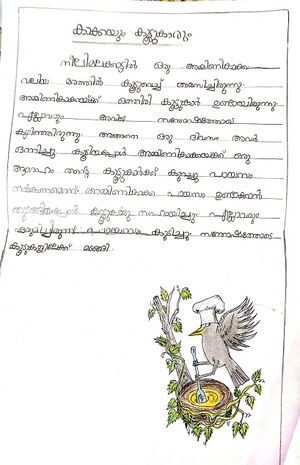 കാക്കയും കൂട്ടുകാരും
നീലിമലക്കാട്ടിൽ ഒരു അമ്മിണികാക്ക
വലിയ മരത്തിൽ കൂട്ടുവെച്ച് താമസിച്ചിരുന്നു
അമ്മിണികാക്കയ്ക്ക് ഒത്തിരി കൂട്ടുകാർ ഉണ്ടായിരുന്നു
എല്ലാവരും അവിടെ സന്തോഷത്തോടെ
കഴിഞ്ഞിരുന്നു. അങ്ങനെ ഒരു ദിവസം അവർ
ഒന്നിച്ചു കൂടിയപ്പോൾ അമ്മിണികാക്കയ്ക്ക് ഒരു
ആഗ്രഹം തന്റെ കൂട്ടുകാർക്ക് കുറച്ചു പായസം
നൽകണമെന്ന് അമ്മിണികാക്ക പായസം ഉണ്ടാക്കാൻ
തുടങ്ങിയപ്പോൾ കൂട്ടുകാരും സഹായിച്ചു. എല്ലാവരും
ഒരുമിച്ചിരുന്ന് പായസം കുടിച്ചു സന്തോഷത്തോടെ
കൂടുകളിലേക്ക് മടങ്ങി.